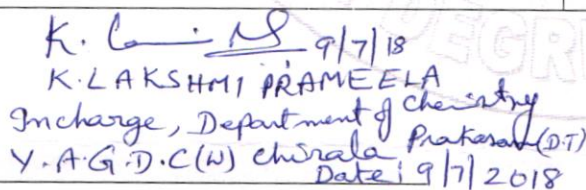 K. 9/7/18
K. LAKSHMI PRAMEELA
Incharge, Department of Chemistry
Y.A.G.D.C(W) chirala Prakasam(D.T)
Date: 9/7/2018
DEGR